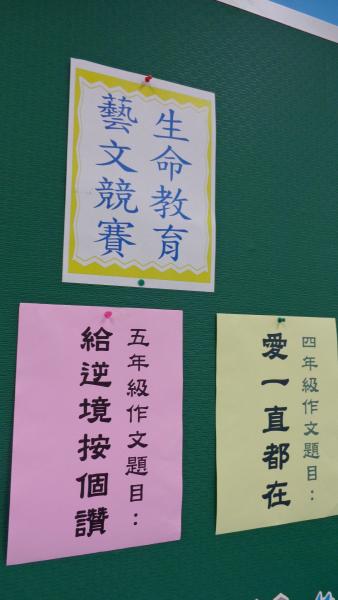 生命教育
藝文競賽
四年級作文題目：
愛一直都在
五年級作文題目：
給逆境按個讚